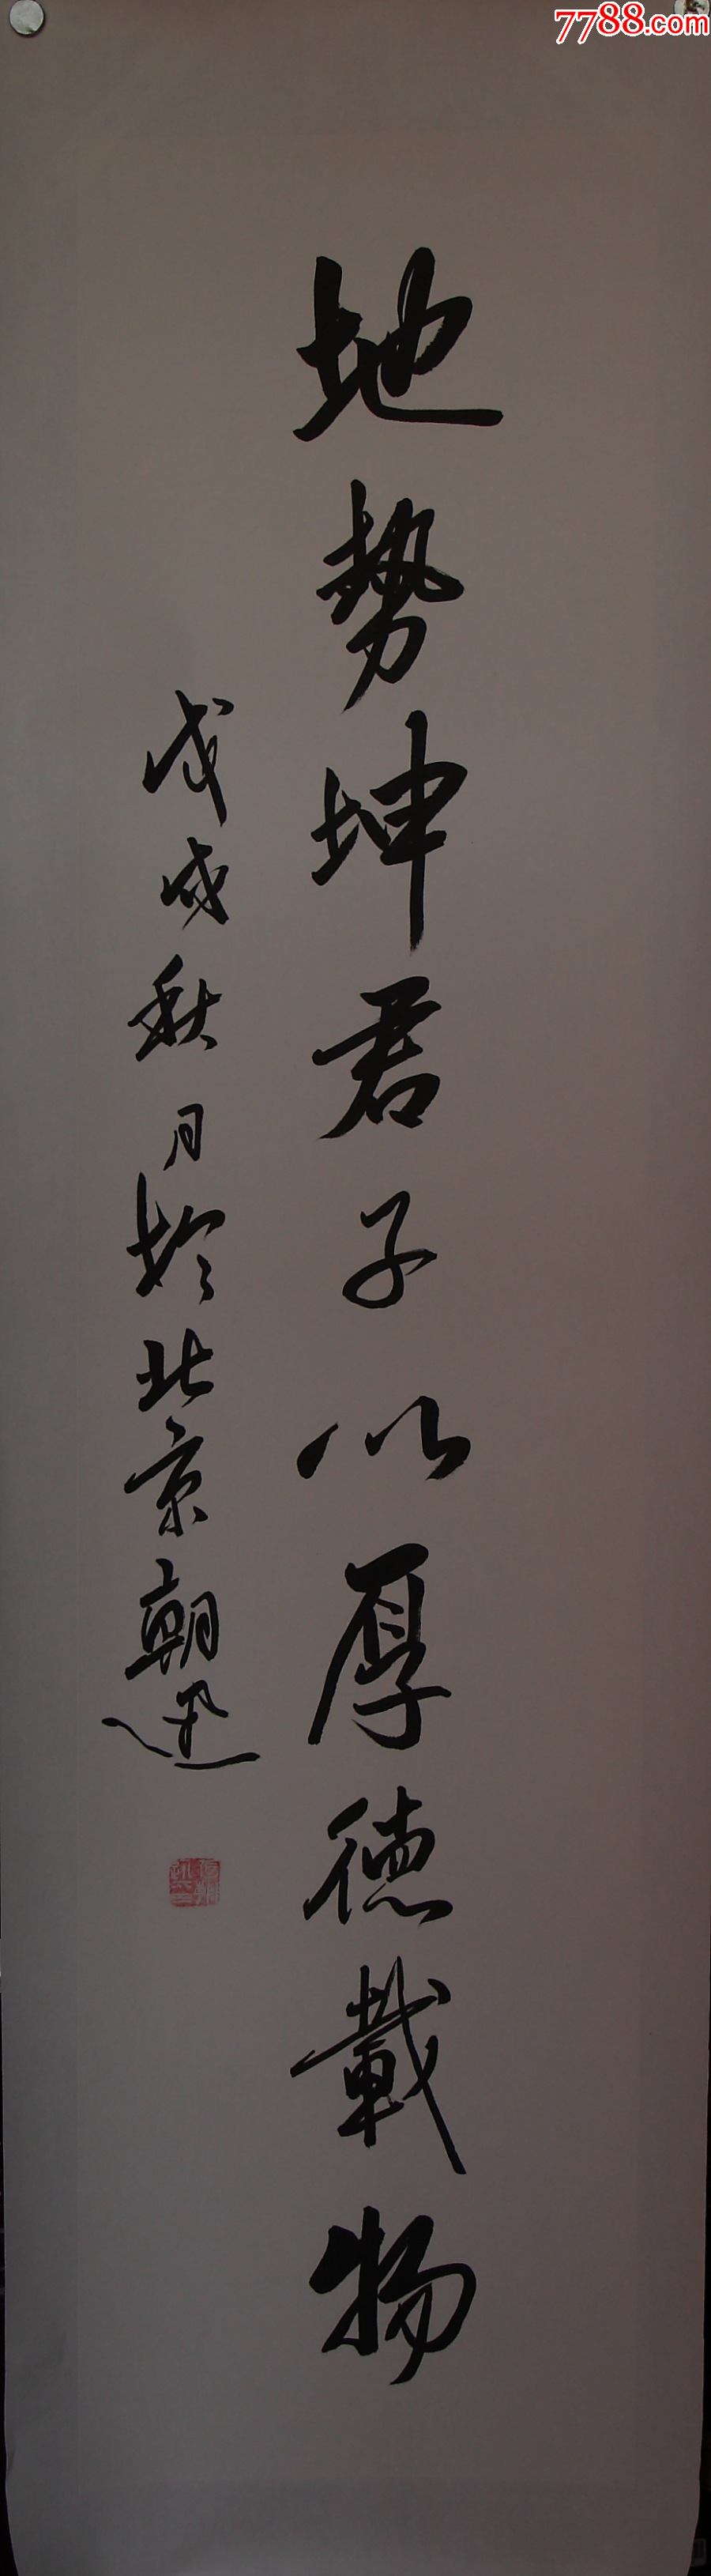 7788.com
地勢坤君子以厚德載物
戊戌秋月於北京朝迅